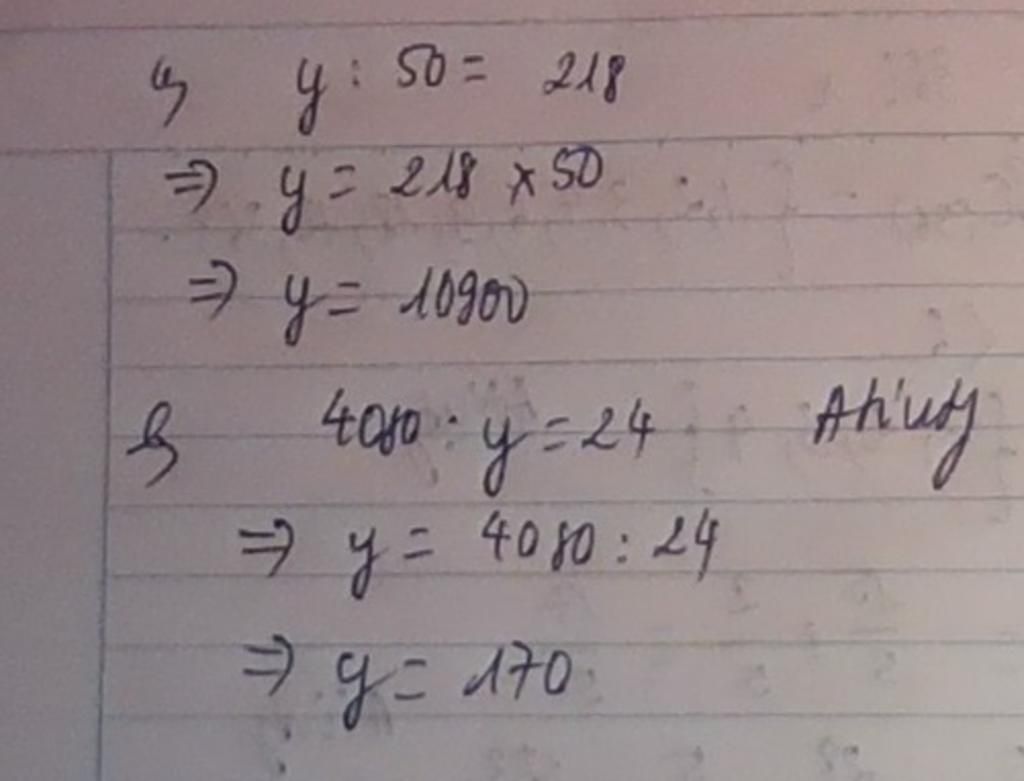 y : 50 = 218
⇒ y = 218 x 50
⇒ y = 10900
4080 : y = 24
⇒ y = 4080 : 24
⇒ y = 170